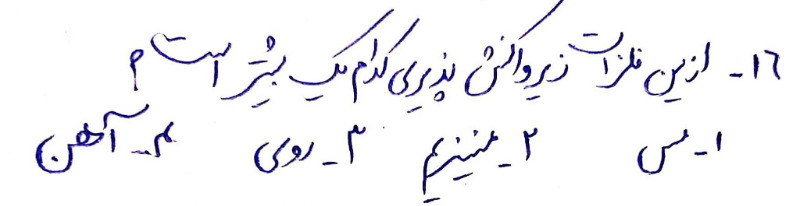 ۱۶- ازین فلزات زیر واکنش پذیری کدام یک بیشتر است؟
۱- مس ۲- منیزیم ۳- روی ۴- آهن